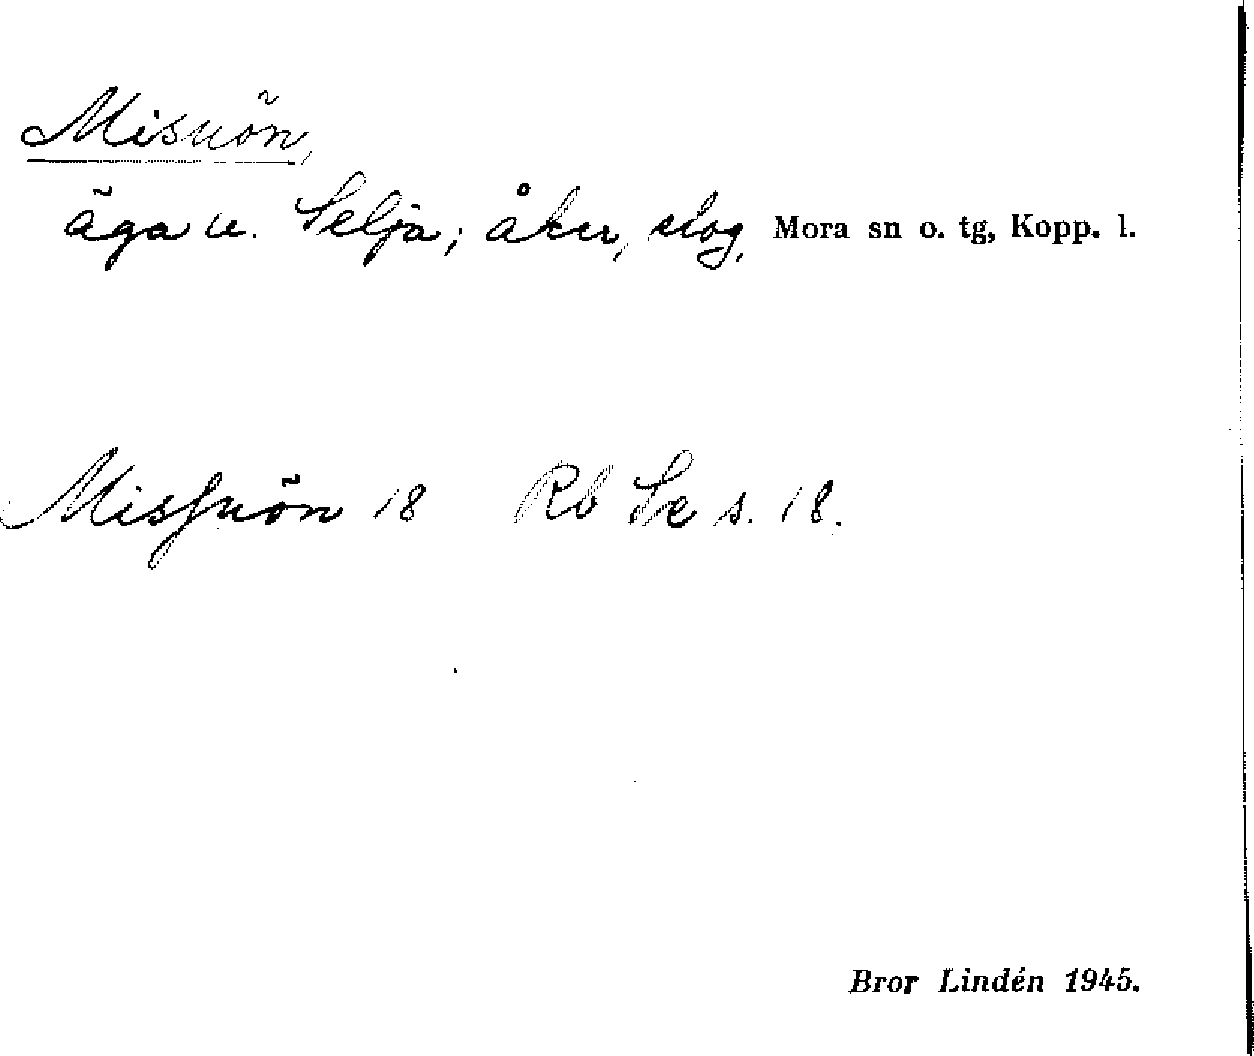 Misnön,
äga u. Selja; åker, slog, Mora sn o. tg, Kopp. l.
Missnön 18 Rb Se s. 18.
Bror Lindén 1945.